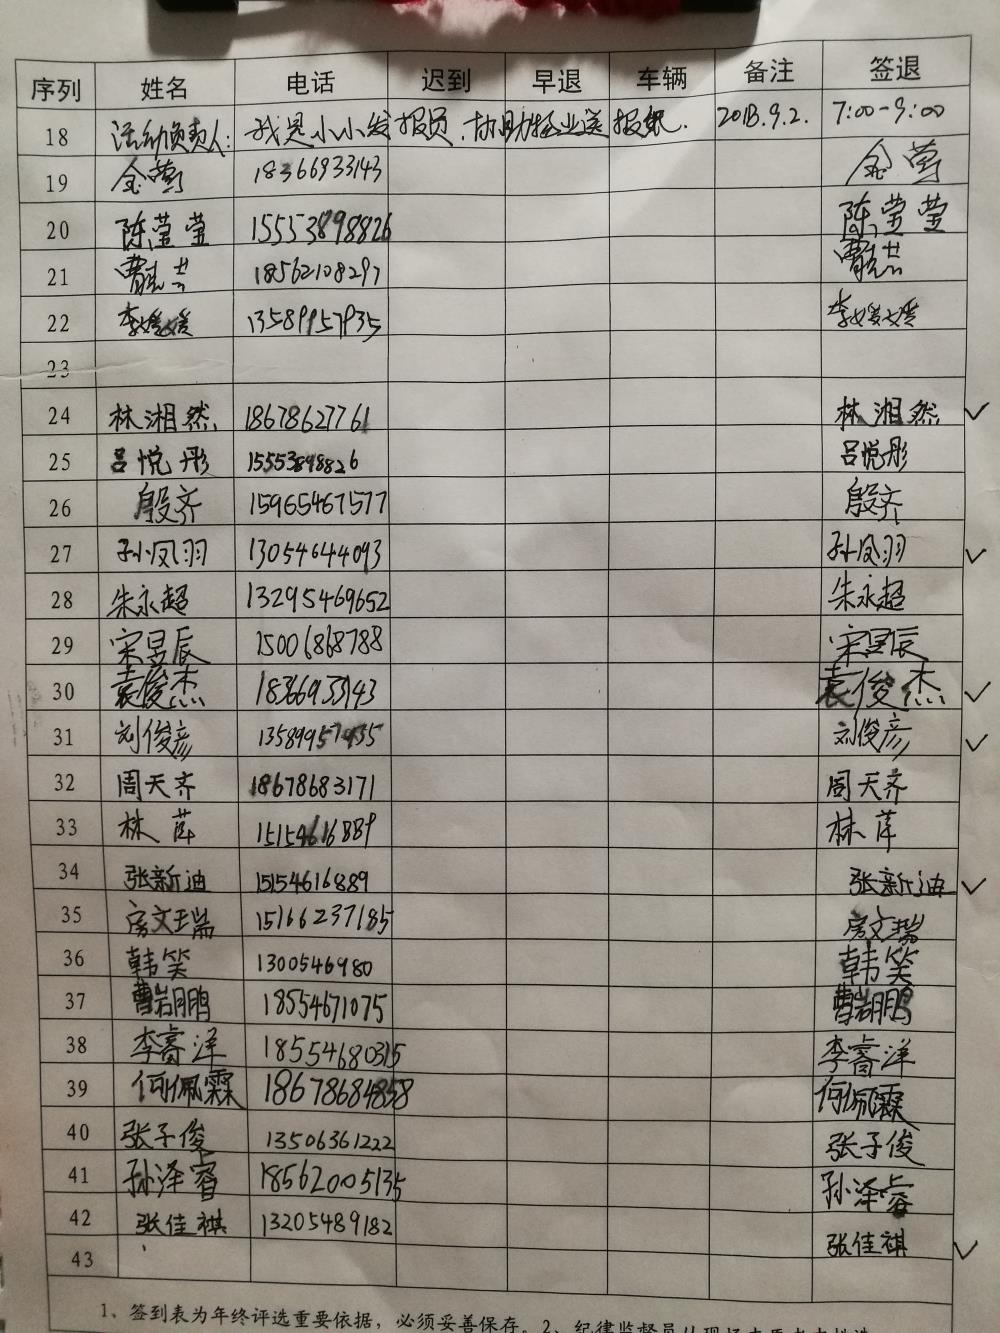 序列 姓名 电话 迟到 早退 车辆 备注 签退
18 活动负责人: 我是小小发报员.协助物业送报纸. 2018.9.2. 7:00-9:00
19 金莺 18366933143 金莺
20 陈莹莹 15553898826 陈莹莹
21 曹 18562108297 曹
22 李媛媛 13589957935 李媛媛
23
24 林湘然 18678627761 林湘然 ✓
25 吕悦彤 15553898826 吕悦彤
26 殷齐 15965467577 殷齐
27 孙凤羽 13054644093 孙凤羽 ✓
28 朱永超 13295469652 朱永超
29 宋昱辰 15006868788 宋昱辰
30 袁俊杰 18366933143 袁俊杰 ✓
31 刘俊彦 13589957935 刘俊彦 ✓
32 周天齐 18678683171 周天齐
33 林 15154616889 林
34 张新迪 15154616889 张新迪 ✓
35 房文瑞 15166237185 房文瑞
36 韩笑 1300546980 韩笑
37 曹岩鹏 18554671075 曹岩鹏
38 李睿洋 18554680315 李睿洋
39 何佩霖 18678684858 何佩霖
40 张子俊 13506361222 张子俊
41 孙泽睿 18562005135 孙泽睿
42 张佳祺 13205489182 张佳祺 ✓
43
1、签到表为年终评选重要依据，必须妥善保存。2、纪律监督员从现场